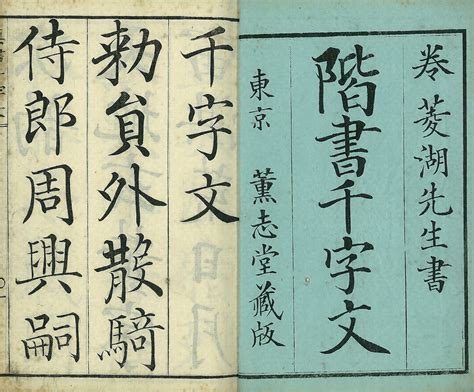 卷菱湖先生書
階書千字文
東京 薰志堂藏版
千字文
勅貟外散騎
侍郎周興嗣